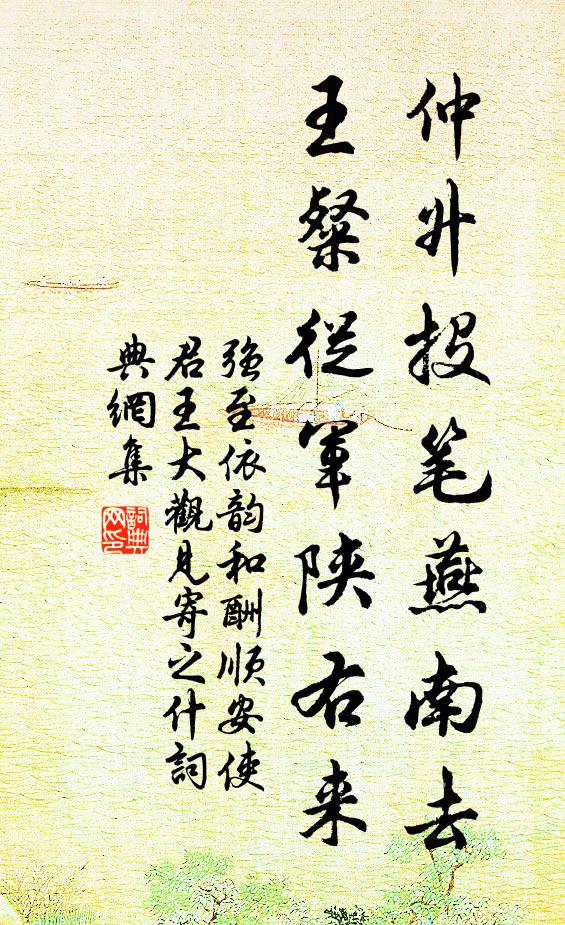 仲升投笔燕南去
王粲從军陕右来
強至依韵和酬順安使
君王大觀見寄之什詞
典網集
詞典
网印